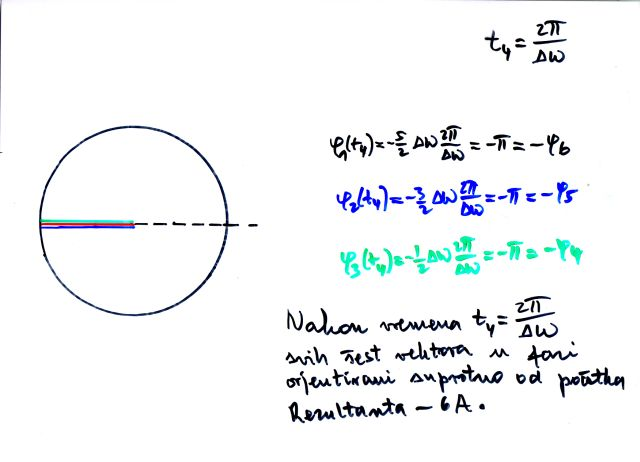 t₄ = 2π/Δω
φ₁(t₄) = -5/2 Δω 2π/Δω = -π = -φ₆
φ₂(t₄) = -3/2 Δω 2π/Δω = -π = -φ₅
φ₃(t₄) = -1/2 Δω 2π/Δω = -π = -φ₄
Nakon vremena t₄ = 2π/Δω
svih šest vektora u fazi
orjentirani suprotno od početka
Rezultanta - 6A.